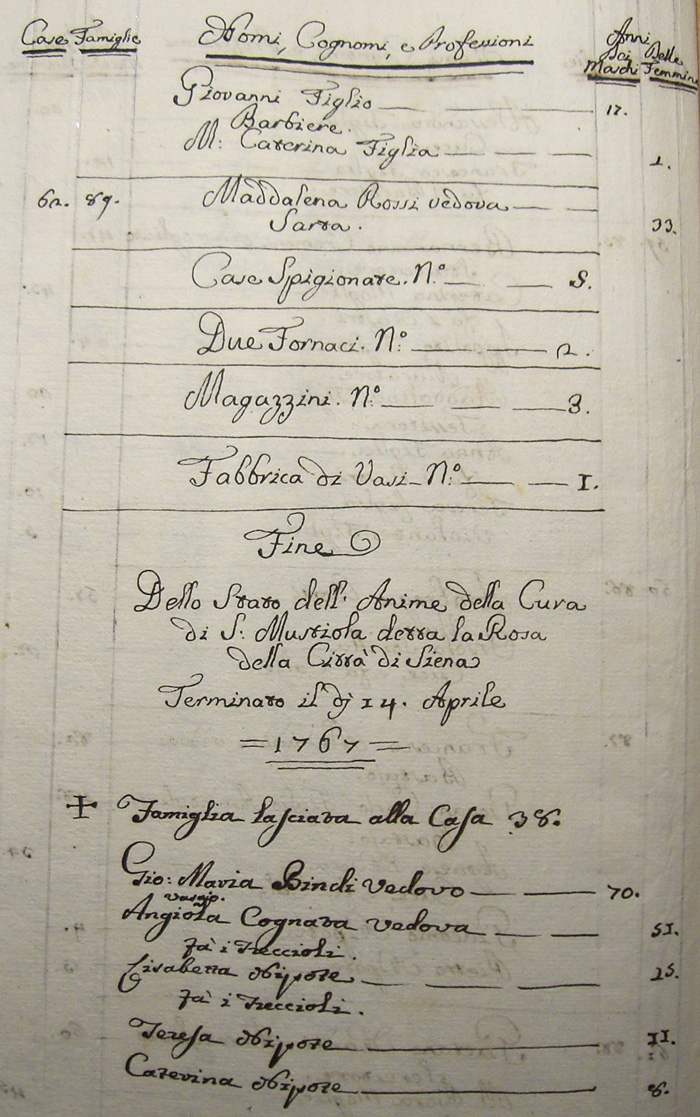 Case Famiglie Nomi, Cognomi, e Professioni Anni
Dei Delle
Maschi Femmine
Giovanni Figlio 17.
Barbiere.
M: Caterina Figlia 1.
62. 89. Maddalena Rossi vedova
Sarta. 33.
Case Spigionate. N.° 5.
Due Fornaci. N.° 2.
Magazzini. N.° 3.
Fabbrica di Vasi N.° 1.
Fine
Dello Stato dell' Anime della Cura
di S: Mustiola detta la Rosa
della Città di Siena
Terminato il dj 14. Aprile
=1767=
+ Famiglia lasciata alla Casa 38.
Gio: Maria Bindi Vedovo 70.
Angiola Cognata vedova 51.
fà i Treccioli.
Lisabetta Nipote 25.
fà i Treccioli.
Teresa Nipote 11.
Caterina Nipote 8.